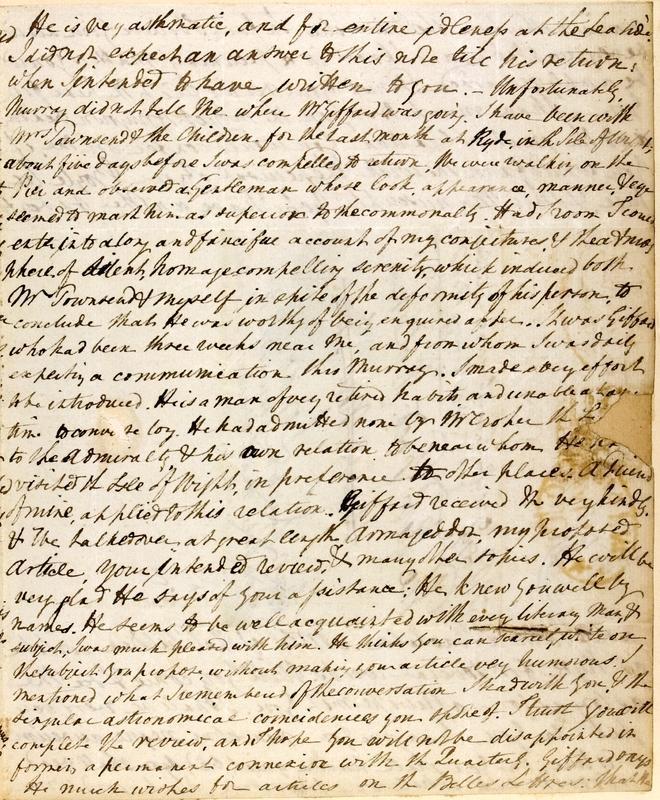 He is very asthmatic, and for entire idleness at the Sea Side.
I did not expect an answer to this note till his return;
when I intended to have written to you. - Unfortunately,
Murray did not tell me where Mr Gifford was going. I have been with
Mrs Townsend & the Children for the last month at Ryde, in the Isle of Wight,
about five days before I was compelled to return, We were walking on the
Pier and observed a Gentleman whose look, appearance, manner, & eye
seemed to mark him as superior to the commonalty. Had I room I could
enter into a long and fanciful account of my conjectures & the atmos
phere of silent, homage compelling serenity which induced both
Mrs Townsend & myself in spite of the deformity of his person, to
conclude that He was worthy of being enquired after. It was Gifford
who had been three weeks near me, and from whom I was daily
expecting a communication thro Murray. I made every effort
to be introduced. He is a man of very retired habits and unable at any
time to converse long. He had admitted none but Mr Croker the
to the Admiralty & his own relation, to be near whom He
visited the Isle of Wight, in preference to other places. A friend
of mine, applied to this relation. Gifford received me very kindly.
& We talked over at great length Armageddon, my proposed
Article, your intended review, & many other topics. He will be
very glad He says of your assistance. He knew you well by
names. He seems to be well acquainted with every literary Man, &
subject, I was much pleased with him. He thinks you can scarcely write on
the subject you propose, without making your article very humorous. I
mentioned what I remembered of the conversation I had with you, & the
singular astronomical coincidences you spoke of. I trust you will
complete the review, and I hope you will not be disappointed in
forming a permanent connexion with the Quarterly. Gifford says
He much wishes for articles on the Belles Lettres. That the